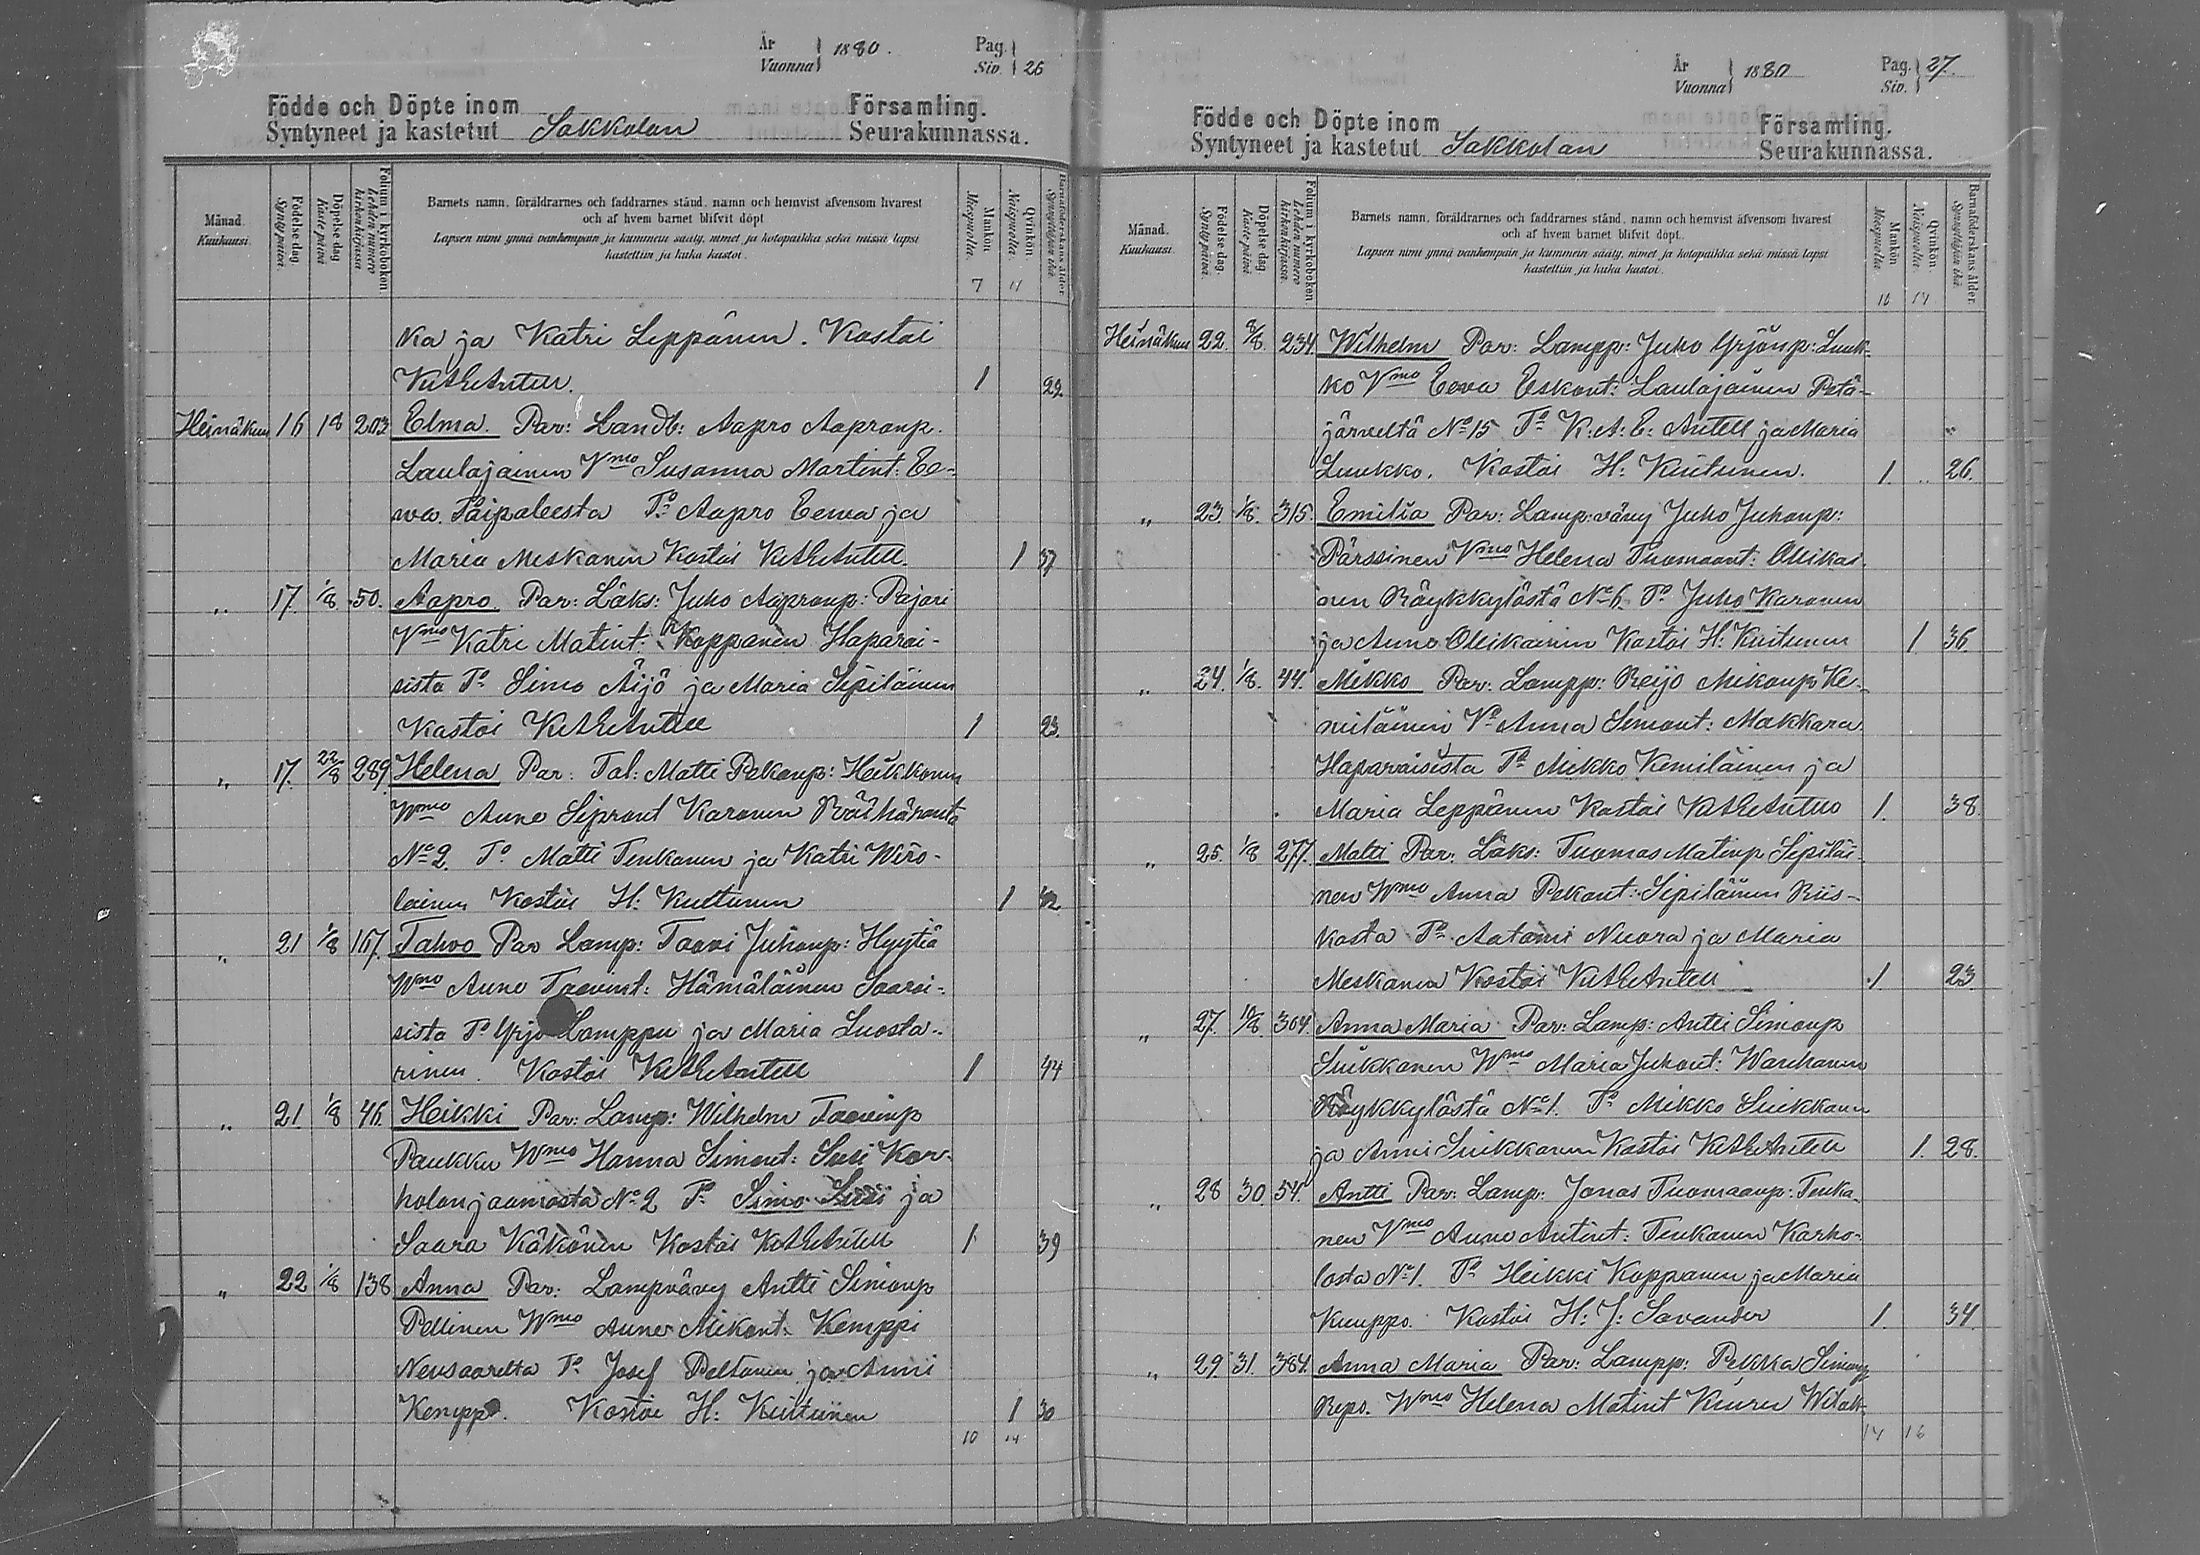 År Vuonna 1880. Pag. Siv. 26
Födde och Döpte inom Församling.
Syntyneet ja kastetut Sakkolan Seurakunnassa.
Månad. Kuukausi.
Födelsedag Syntypäivä
Döpelsedag Kastepäivä
Folium i kyrkoboken. Lehden numero kirkonkirjassa
Barnets namn, föräldrarnes och faddrarnes stånd, namn och hemvist äfvensom hvarest
och af hvem barnet blifvit döpt
Lapsen nimi ynnä vanhempain ja kummein sääty, nimet ja kotopaikka sekä missä lapsi
kastettiin ja kuka kastoi.
Mankön Miespuolia.
Qvinkön Naispuolia.
Barnaföderskans ålder Synnyttäjän ikä.
7 11
ka ja Katri Leppänen. Kastoi
KAEAntell. 1 29.
Heinäkuu 16 18 203 Elma. Van: Landb: Aapro Aapronp.
Laulajainen Vmo Susanna Martint: Ee-
wa Taipaleesta To Aapro Eewa ja
Maria Meskanen Kastoi KAEAntell. 1 37
„ 17. 1/8. 50. Aapro Van: Läks: Juho Aapronp: Rajari
Vmo Katri Matint: Koppanen Haparai-
sista To Simo Äijö ja Maria Sipiläinen
Kastoi KAEAntell 1 23.
„ 17. 22/8 289. Helena Van: Tal: Matti Pekanp: Heikkonen
Wmo Anna Sipront Karonen Röihäranta
No 2. To Matti Tenkanen ja Katri Wiro-
lainen Kastoi H: Kuitunen 1 42
„ 21 1/8 167. Tahvo Van Lamp: Taavi Juhonp: Hyytiä
Wmo Anna Taavint: Hämäläinen Saaroi-
sista To Yrjö Lamppu ja Maria Luosta-
rinen. Kastoi KAEAntell 1 44
„ 21. 1/8 46. Heikki Van: Lamp: Wilhelm Taavinp
Paukku Wmo Hanna Simont: Susi Kar-
holanjaamasta No 2 To Simo Susi ja
Saara Käkönen Kastoi KAEAntell 1 39
„ 22 1/8 138 Anna Van: Lampvävy Antti Simonp
Pellinen Wmo Anna Mikont. Kemppi
Neusaarelta To Josef Peltonen ja Anni
Kemppi. Kastoi H: Kuitunen 1 30
10 14
År Vuonna 1880 Pag. Siv. 27.
Födde och Döpte inom Församling.
Syntyneet ja kastetut Sakkolan Seurakunnassa.
Månad. Kuukausi.
Födelsedag Syntypäivä
Döpelsedag Kastepäivä
Folium i kyrkoboken Lehden numero kirkonkirjassa.
Barnets namn, föräldrarnes och faddrarnes stånd, namn och hemvist äfvensom hvarest
och af hvem barnet blifvit döpt.
Lapsen nimi ynnä vanhempain ja kummein sääty, nimet ja kotopaikka sekä missä lapsi
kastettiin ja kuka kastoi.
Mankön Miespuolia.
Qvinkön. Naispuolia.
Barnaföderskans ålder. Synnyttäjän ikä.
10 14
Heinäkuu 22. 8/8. 234. Wilhelm Van: Lampp: Juho Yrjönp: Luuk-
ko Vmo Eeva Eskont: Laulajainen Petä-
järveltä No 15 To K: A: E: Antell ja Maria
Luukko. Kastoi H: Kuitunen. 1. 26.
„ 23. 1/8. 315. Emilia Van: Lamp: vävy Juho Juhonp:
Pärssinen Vmo Helena Tuomaant: Ollikai-
nen Röykkylästä No 6. To Juho Karonen
ja Anna Ollikainen Kastoi H: Kuitunen 1 36.
„ 24. 1/8. 44. Mikko Van: Lampp: Reijo Mikonp: Ke-
miläinen Vo Anna Simont: Makkara
Haparaisista To Mikko Kemiläinen ja
Maria Leppänen Kastoi KAEAntell 1. 38.
„ 25. 1/8 277. Matti Van: Läks: Tuomas Matinp Sipiläi-
nen Wmo Anna Pekant: Sipiläinen Riis-
kasta To Aatami Nuora ja Maria
Meskanen Kastoi KAEAntell 1 23
„ 27. 10/8. 304. Anna Maria Van: Lamp: Antti Simonp
Suikkanen Wmo Maria Juhont: Wanhanen
Röykkylästä No 1. To Mikko Suikkanen
ja Anni Suikkanen Kastoi KAEAntell 1. 28.
„ 28 30. 54. Antti Van: Lamp: Jonas Tuomaanp: Tenka-
nen Vmo Anna Antint: Tenkanen Karho-
lasta No 1. To Heikki Koppanen ja Maria
Kuuppo. Kastoi H: J: Savander 1. 34.
„ 29. 31. 384. Anna Maria Van: Lampp: Pekka Simonp
Repo. Wmo Helena Matint Kiuru Witak-
14 16